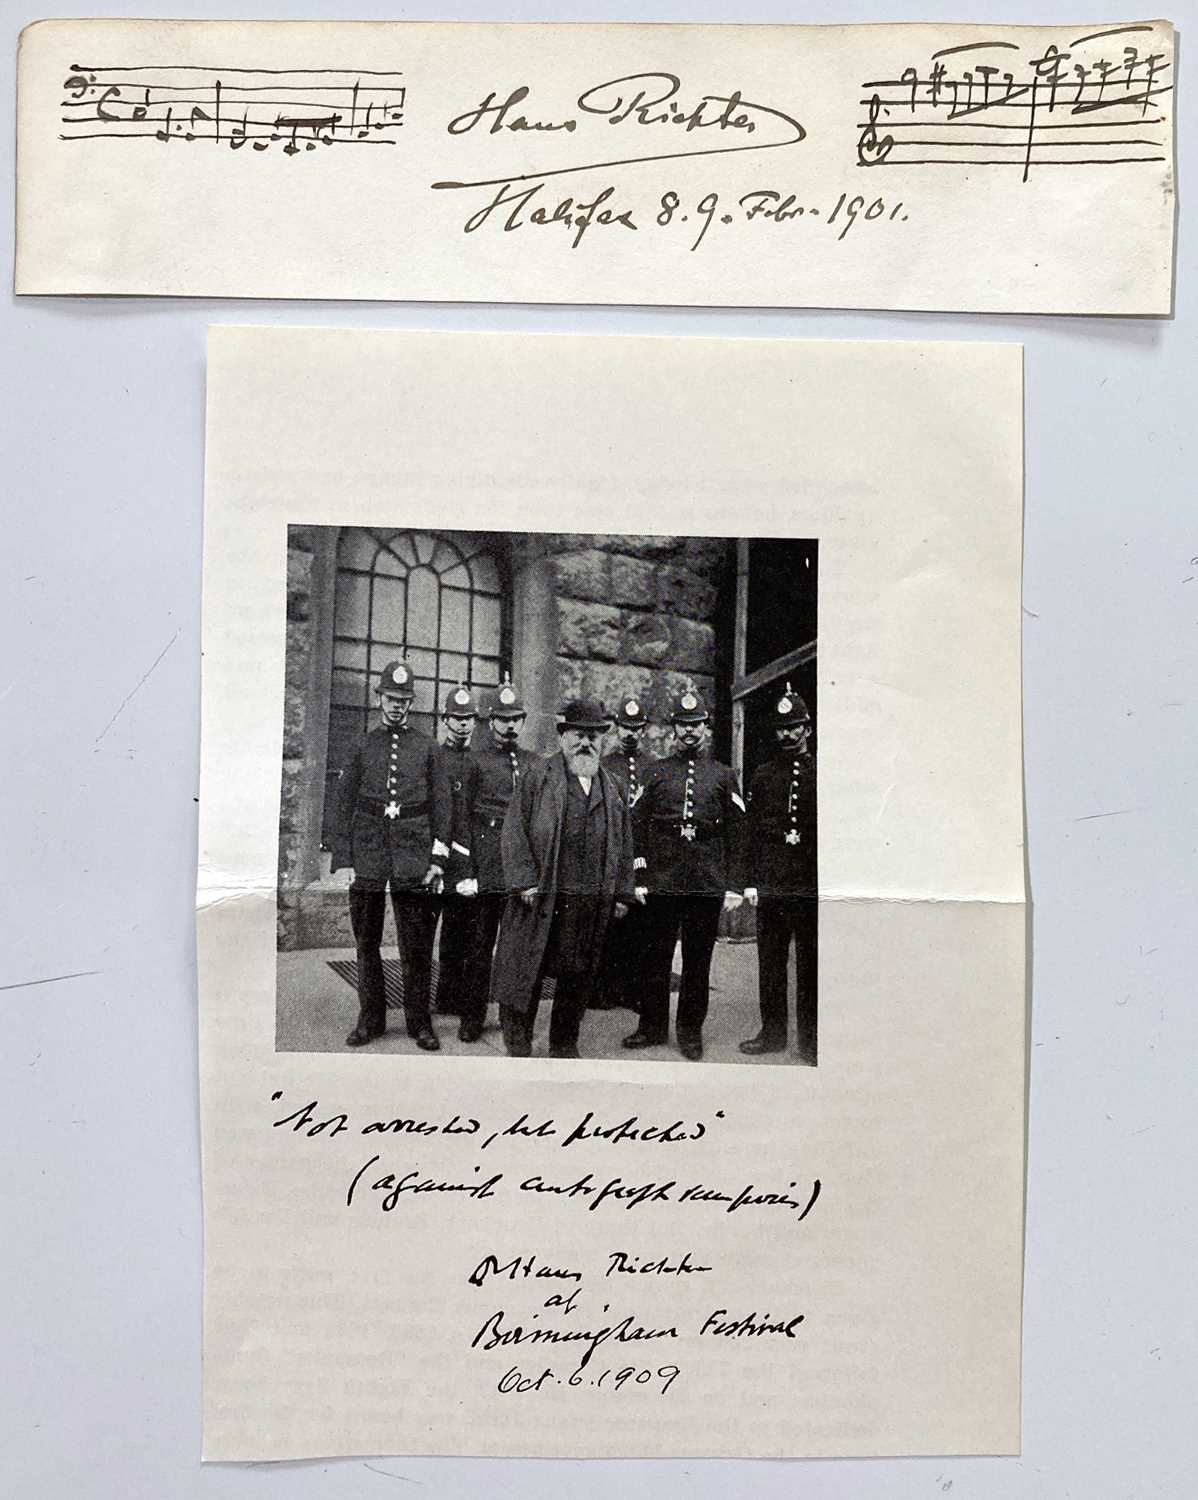 Hans Richter
Halifax 8. 9. Febr. 1901.
"Not arrested, but protected"
(against autograph vampires)
Dr Hans Richter
at
Birmingham Festival
Oct. 6. 1909